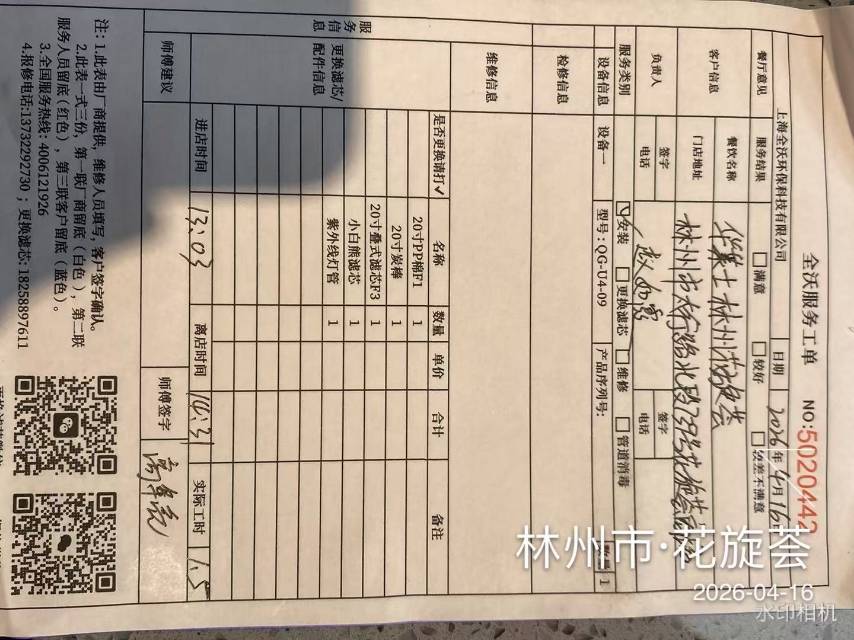 全沃服务工单 NO:5020442
上海全沃环保科技有限公司 日期 2026年4月16
餐厅意见 服务结果 满意 较好 较差不满意
客户信息 餐饮名称 华莱士林州花旋荟
门店地址 林州市太行路北段 花旋荟
负责人 签字 签字
电话 电话
服务类别 安装 更换滤芯 维修 管道消毒
设备信息 设备一 型号:QG-U4-09 产品序列号: 数量 1
检修信息
维修信息
服务信息
更换滤芯/配件信息
是否更换请打✓ 名称 数量 单价 合计 备注
20寸PP棉F1 1
20寸炭棒 1
20寸叠式滤芯F3 1
小白熊滤芯 1
紫外线灯管 1
进店时间 13:03 离店时间 14:31 实际工时 1.5
师傅建议 师傅签字
注:1.此表由厂商提供,维修人员填写,客户签字确认。
2.此表一式三份,第一联厂商留底(白色),第二联
服务人员留底(红色),第三联客户留底(蓝色)。
3.全国服务热线:4006121926
4.报修电话:13732292730;更换滤芯:18258897611
林州市·花旋荟
2026-04-16
水印相机